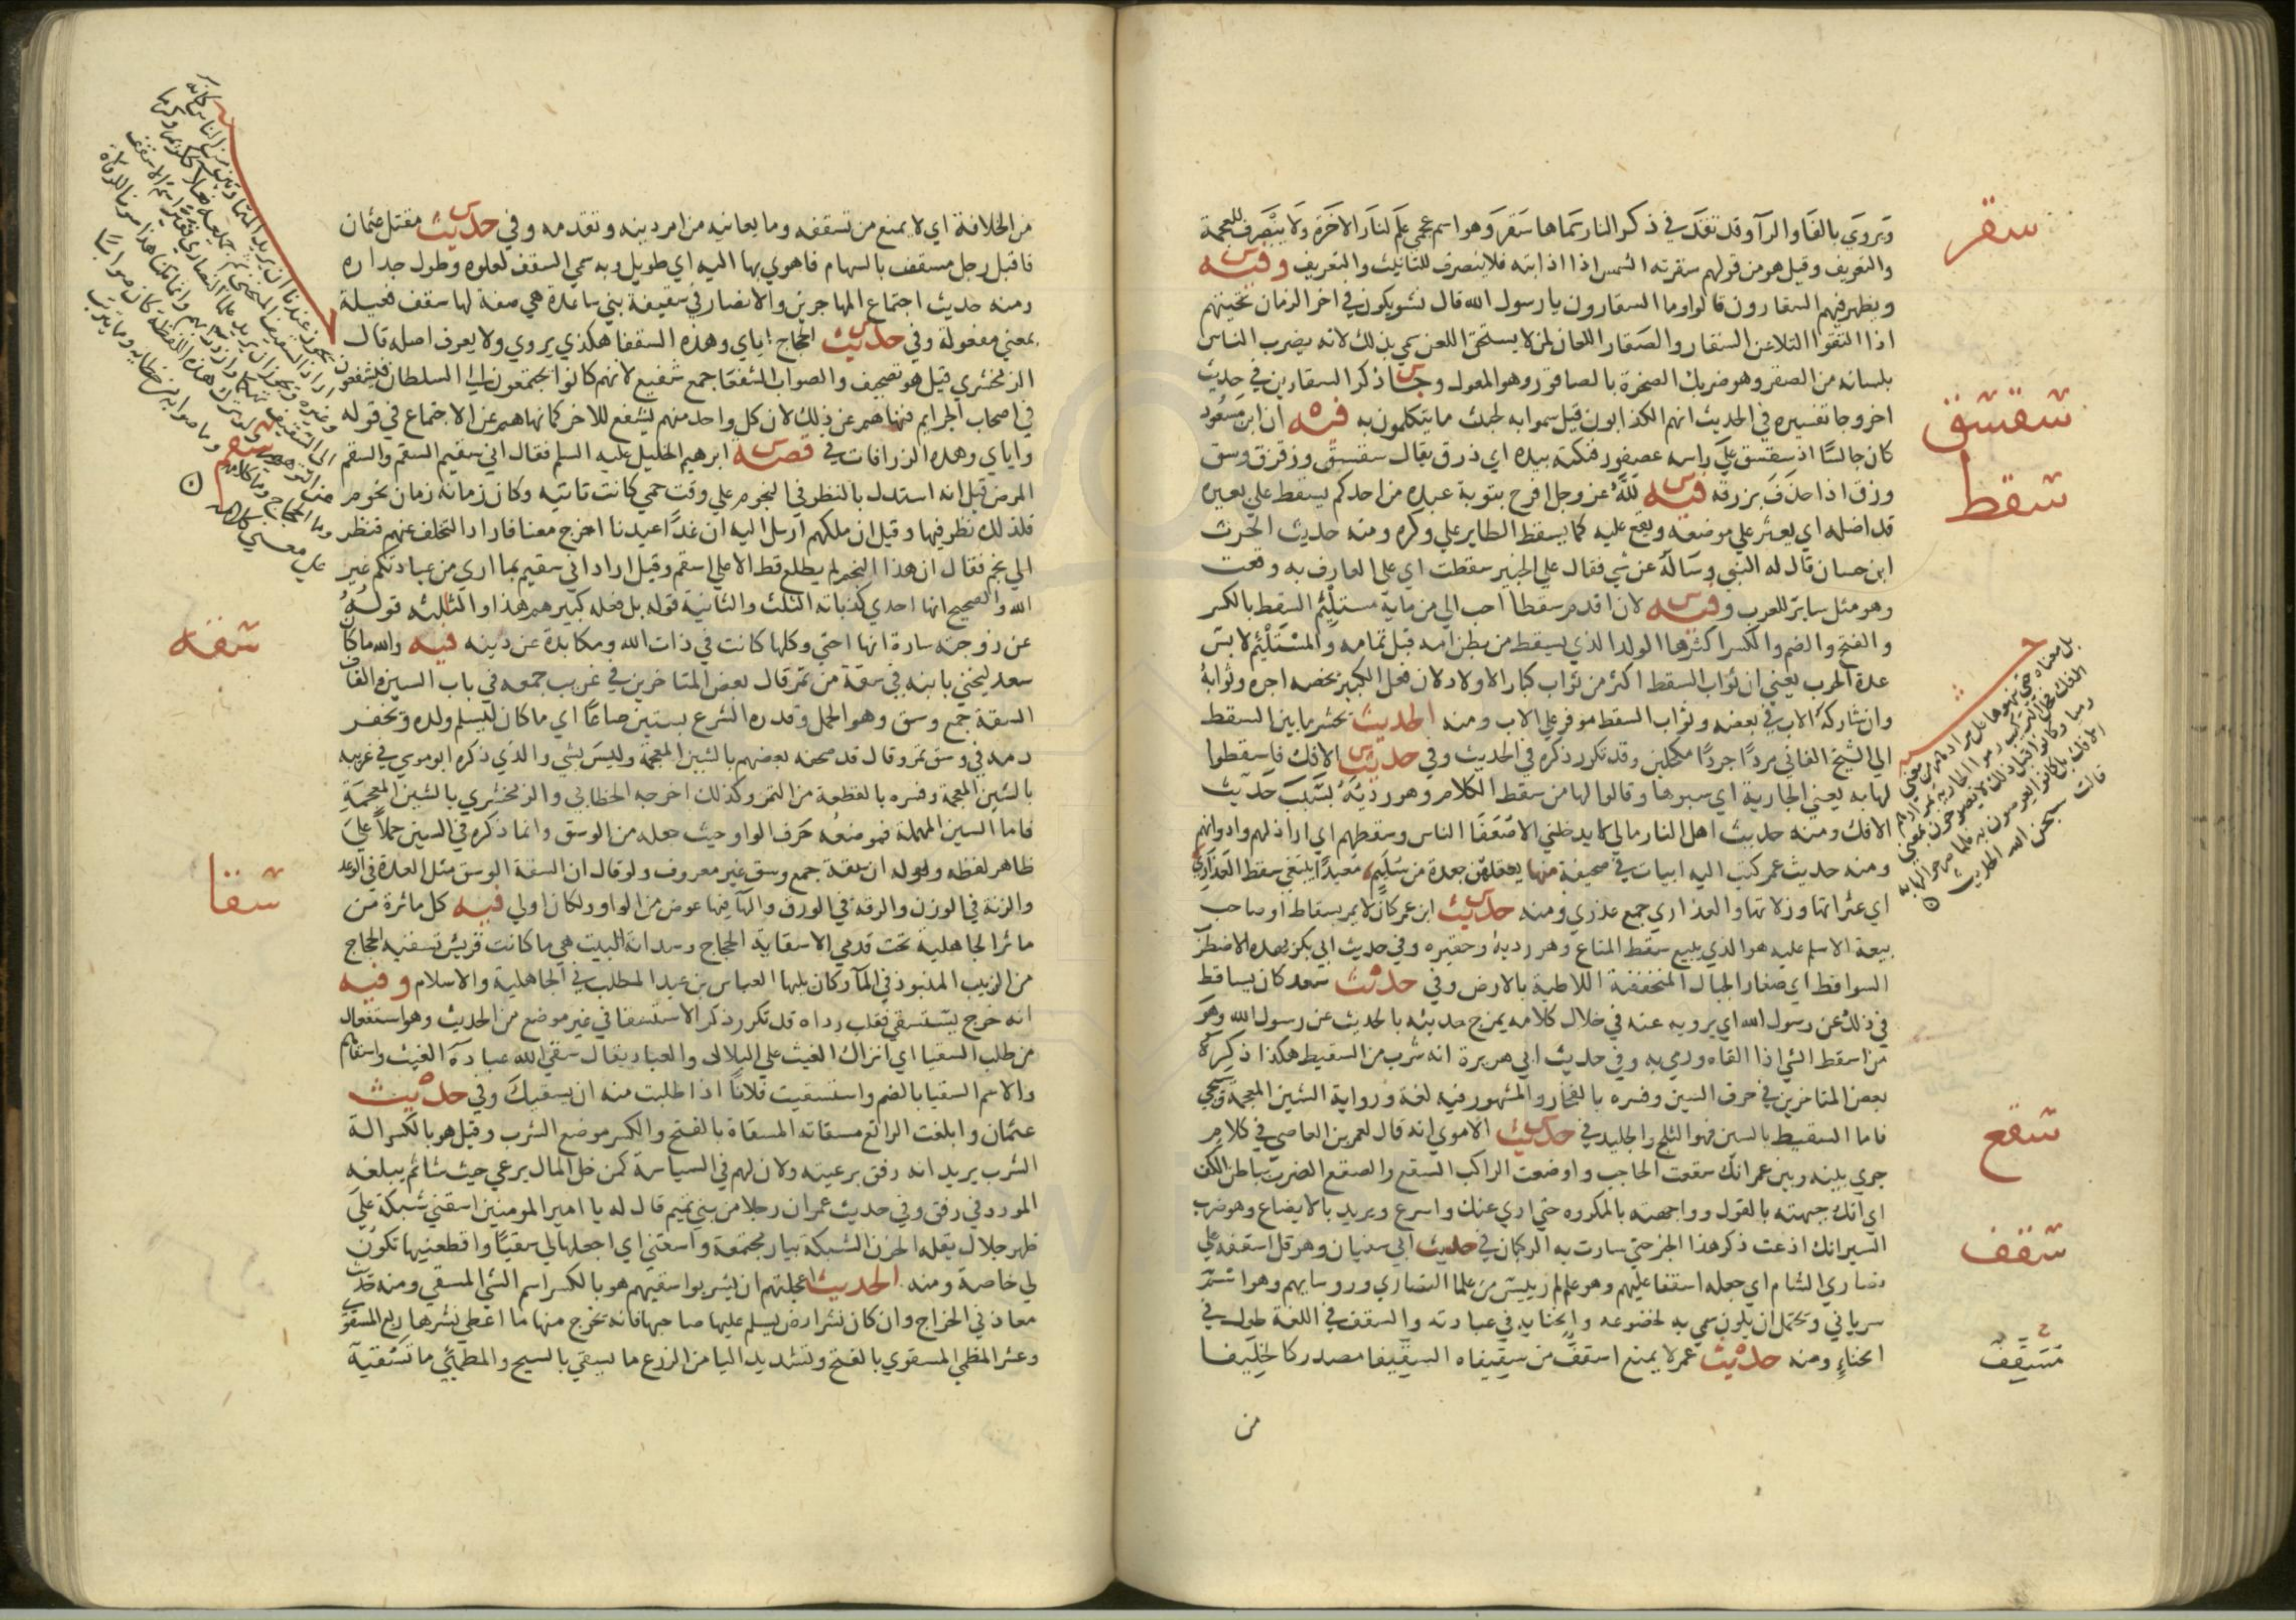 سقر
ويروي بالفا والرآ وقد تقدم في ذكر النار سماها سَقَر وهو اسم عجمي علم لنار الاخرة ولا ينصرف للعجمة
والتعريف وقيل هو من قولهم سقرته الشمس اذا اذابته فلا ينصرف للتانيث والتعريف وفيه
ويظهر فيهم السقارون قالوا وما السقارون يا رسول الله قال نشو يكون في اخر الزمان تحيتهم
اذا التقوا التلاعن السقار والصقار اللعان لمن لا يستحق اللعن سمي بذلك لانه يضرب الناس
بلسانه من الصقر وهو ضربك الصخرة بالصاقور وهو المعول وجا ذكر السقارين في حديث
سقسق
اخر وجا تفسيره في الحديث انهم الكذابون قيل سموا به لخبث ما يتكلمون به فيه ان ابن مسعود
كان جالسًا اذ سقسق علي راسه عصفور فنكته بيده اي ذرق يقال سقسق وزقزق وسق
سقط
وزق اذا حذف بزرقه فيه لله عز وجل افرح بتوبة عبده من احدكم يسقط علي بعيره
قد اضله اي يعثر علي موضعه ويقع عليه كما يسقط الطاير علي وكره ومنه حديث الحرث
ابن حسان قال له النبي وساله عن شي فقال علي الخبير سقطت اي علي العارف به وقعت
وهو مثل ساير للعرب وفيه لان اقدم سقطا احب الي من ماية مستلئم السقط بالكسر
والفتح والضم والكسر اكثرها الولد الذي يسقط من بطن امه قبل تمامه والمستلئم لابس
عدة الحرب يعني ان ثواب السقط اكثر من ثواب كبار الاولاد لان فعل الكبير يخصه اجره وثوابه
وان شاركه الاب في بعضه وثواب السقط موفر علي الاب ومنه الحديث يحشر ما بين السقط
الي الشيخ الفاني مردًا جردًا مكحلين وقد تكرر ذكره في الحديث وفي حديث الافك فاسقطوا
لها به يعني الجارية اي سبوها وقالوا لها من سقط الكلام وهو رديه بسبب حديث
الافك ومنه حديث اهل النار مالي لا يدخلني الا ضعفا الناس وسقطهم اي اراذلهم وادوانهم
ومنه حديث عمر كتب اليه ابيات في صحيفة منها يعقلهن جعدة من سليم معيدًا يبتغي سقط العذاري
اي عثراتها وزلاتها والعذاري جمع عذري ومنه حديث ابن عمر كان لا يمر بسقاط او صاحب
بيعة الا سلم عليه هو الذي يبيع سقط المتاع وهو رديه وحقيره وفي حديث ابي بكر بهذه الاضطر
السواقط اي صغار الجبال المنخفضة اللاطية بالارض وفي حديث سعد كان يساقط
في ذلك عن رسول الله اي يرويه عنه في خلال كلامه يمزج حديثه بالحديث عن رسول الله وهو
من اسقط الشي اذا القاه ورمي به وفي حديث ابي هريرة انه شرب من السقيط هكذا ذكره
بعض المتاخرين في حرف السين وفسره بالفخار والمشهور فيه لغة ورواية الشين المعجمة وسيجي
سقع
فاما السقيط بالسين فهو الثلج والجليد في حديث الاموي انه قال لعمرو بن العاصي في كلام
جري بينه وبين عمر انك سقعت الحاجب واوضعت الراكب السقع والصقع الضرب بباطن الكف
اي انك جبهته بالقول وواجهته بالمكروه حتي ادي عنك واسرع ويريد بالايضاع وهو ضرب
سقف
السير انك اذعت ذكر هذا الخبر حتي سارت به الركبان في حديث ابي سفيان وهرقل اسقفه علي
نصاري الشام اي جعله اسقفا عليهم وهو عالم رييس من علما النصاري وروسايهم وهو اسم
سرياني ويحتمل ان يكون سمي به لخضوعه وانحنايه في عبادته والسقف في اللغة طول في
انحناء ومنه حديث عمر لا يمنع اسقف من سقيفاه السقيفا مصدر كالخليفا
من
بل معناه حتي
قالت سبحن الله الحديث
من الخلافة اي لا يمنع من تسقفه وما يعانيه من امر دينه وتقدمه وفي حديث مقتل عثمان
فاقبل رجل مسقف بالسهام فاهوي بها اليه اي طويل وبه سمي السقف لعلوه وطول جداره
ومنه حديث اجتماع المهاجرين والانصار في سقيفة بني ساعدة هي صفة لها سقف فعيلة
بمعني مفعولة وفي حديث الحجاج اياي وهذه السقفا هكذي يروي ولا يعرف اصله قال
الزمخشري قيل هو تصحيف والصواب الشفعا جمع شفيع لانهم كانوا يجتمعون الي السلطان فيشفعون
في اصحاب الجرايم فنهاهم عن ذلك لان كل واحد منهم يشفع للاخر كما نهاهم عن الاجتماع في قوله
سقم
واياي وهذه الزرافات في قصة ابرهيم الخليل عليه السلم فقال اني سقيم السقم والسقم
المرض قيل انه استدل بالنظر في النجوم علي وقت حمي كانت تاتيه وكان زمانه زمان نجوم
فلذلك نظر فيها وقيل ان ملكهم ارسل اليه ان غدًا عيدنا اخرج معنا فاراد التخلف عنهم فنظر
الي نجم فقال ان هذا النجم لم يطلع قط الا علي اسقم وقيل اراد اني سقيم بما اري من عبادتكم غير
الله والصحيح انها احدي كذباته الثلث والثانية قوله بل فعله كبيرهم هذا والثالثه قوله
سقه
عن زوجته سارة انها اختي وكلها كانت في ذات الله ومكابدة عن دينه فيه والله ما كان
سعد ليخني بابنه في سقة من تمر قال بعض المتاخرين في غريب جمعه في باب السين والقاف
السقة جمع وسق وهو الحمل وقدره الشرع بستين صاعًا اي ما كان ليسلم ولده ويخفر
ذمته في وسق تمر وقال قد صحفه بعضهم بالشين المعجمة وليس بشي والذي ذكره ابو موسي في غريبه
بالشين المعجمة وفسره بالقطعة من التمر وكذلك اخرجه الخطابي والزمخشري بالشين المعجمة
فاما السين المهملة فموضعه حرف الواو حيث جعله من الوسق وانما ذكره في السين حملًا علي
ظاهر لفظه وقوله ان سقة جمع وسق غير معروف ولو قال ان السقة الوسق مثل العدة في الوعد
سقا
والزنة في الوزن والرقة في الورق والهآ فيها عوض من الواو ولكان اولي فيه كل ماثرة من
ماثر الجاهلية تحت قدمي الا سقاية الحجاج وسدانة البيت هي ما كانت قريش تسقيه الحجاج
من الزبيب المنبوذ في المآ وكان يليها العباس بن عبد المطلب في الجاهلية والاسلام وفيه
انه خرج يستسقي فقلب رداه قد تكرر ذكر الاستسقا في غير موضع من الحديث وهو استفعال
من طلب السقيا اي انزال الغيث علي البلاد والعباد يقال سقي الله عباده الغيث واسقاهم
والاسم السقيا بالضم واستسقيت فلانًا اذا طلبت منه ان يسقيك وفي حديث
عثمان وابلغت الراتع مسقاته المسقاة بالفتح والكسر موضع الشرب وقيل هو بالكسر الة
الشرب يريد انه رفق برعيته ولان لهم في السياسة كمن خلي المال يرعي حيث شا ثم يبلغه
المورد في رفق وفي حديث عمر ان رجلا من بني تميم قال له يا امير المومنين اسقني شبكة علي
ظهر جلال بقلة الحزن الشبكة بيار مجتمعة واسقني اي اجعلها لي سقيًا واقطعنيها تكون
لي خاصة ومنه الحديث اعجلتهم ان يشربوا سقيهم هو بالكسر اسم الشي المسقي ومنه حديث
معاذ في الخراج وان كان نشر ارض يسلم عليها صاحبها فانه تخرج منها ما اعطي نشرها ربع المسقوي
وعشر المظمي المسقوي بالفتح وتشديد اليا من الزرع ما يسقي بالسيح والمظمئي ما تسقيه